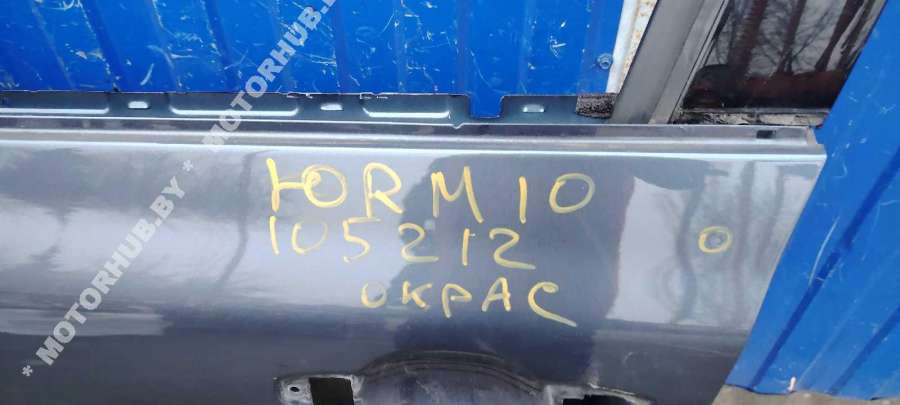 ЮRM10
105212
ОКРАС
* MOTORHUB.BY * MOTORHUB.BY